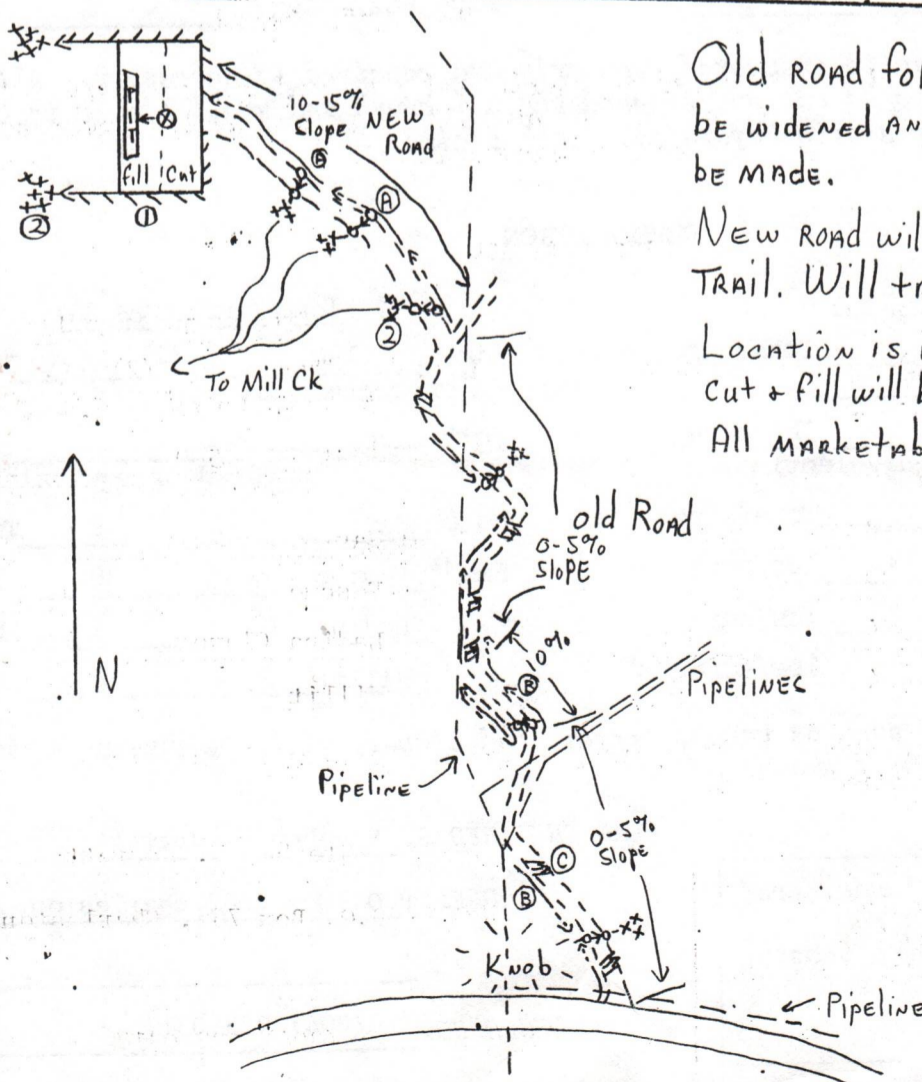 Old ROAD fo
be widened AN
be made.
New road wil
Trail. Will t
Location is
Cut & fill will
All marketab
10-15%
Slope
New
Road
fill
Cut
②
①
Ⓐ
Ⓐ
②
To Mill Ck
N
old Road
0-5%
Slope
0%
Ⓑ
Pipelines
Pipeline
0-5%
Slope
Ⓒ
Ⓑ
Knob
Pipeline